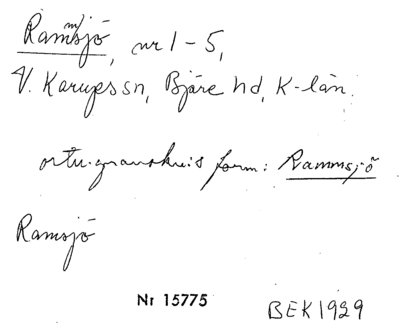 Rammsjö, nr 1-5,
V. Karups sn, Bjäre hd, K-län.
ortn.granskn:s form: Rammsjö
Ramsjö
Nr 15775 BEK 1929